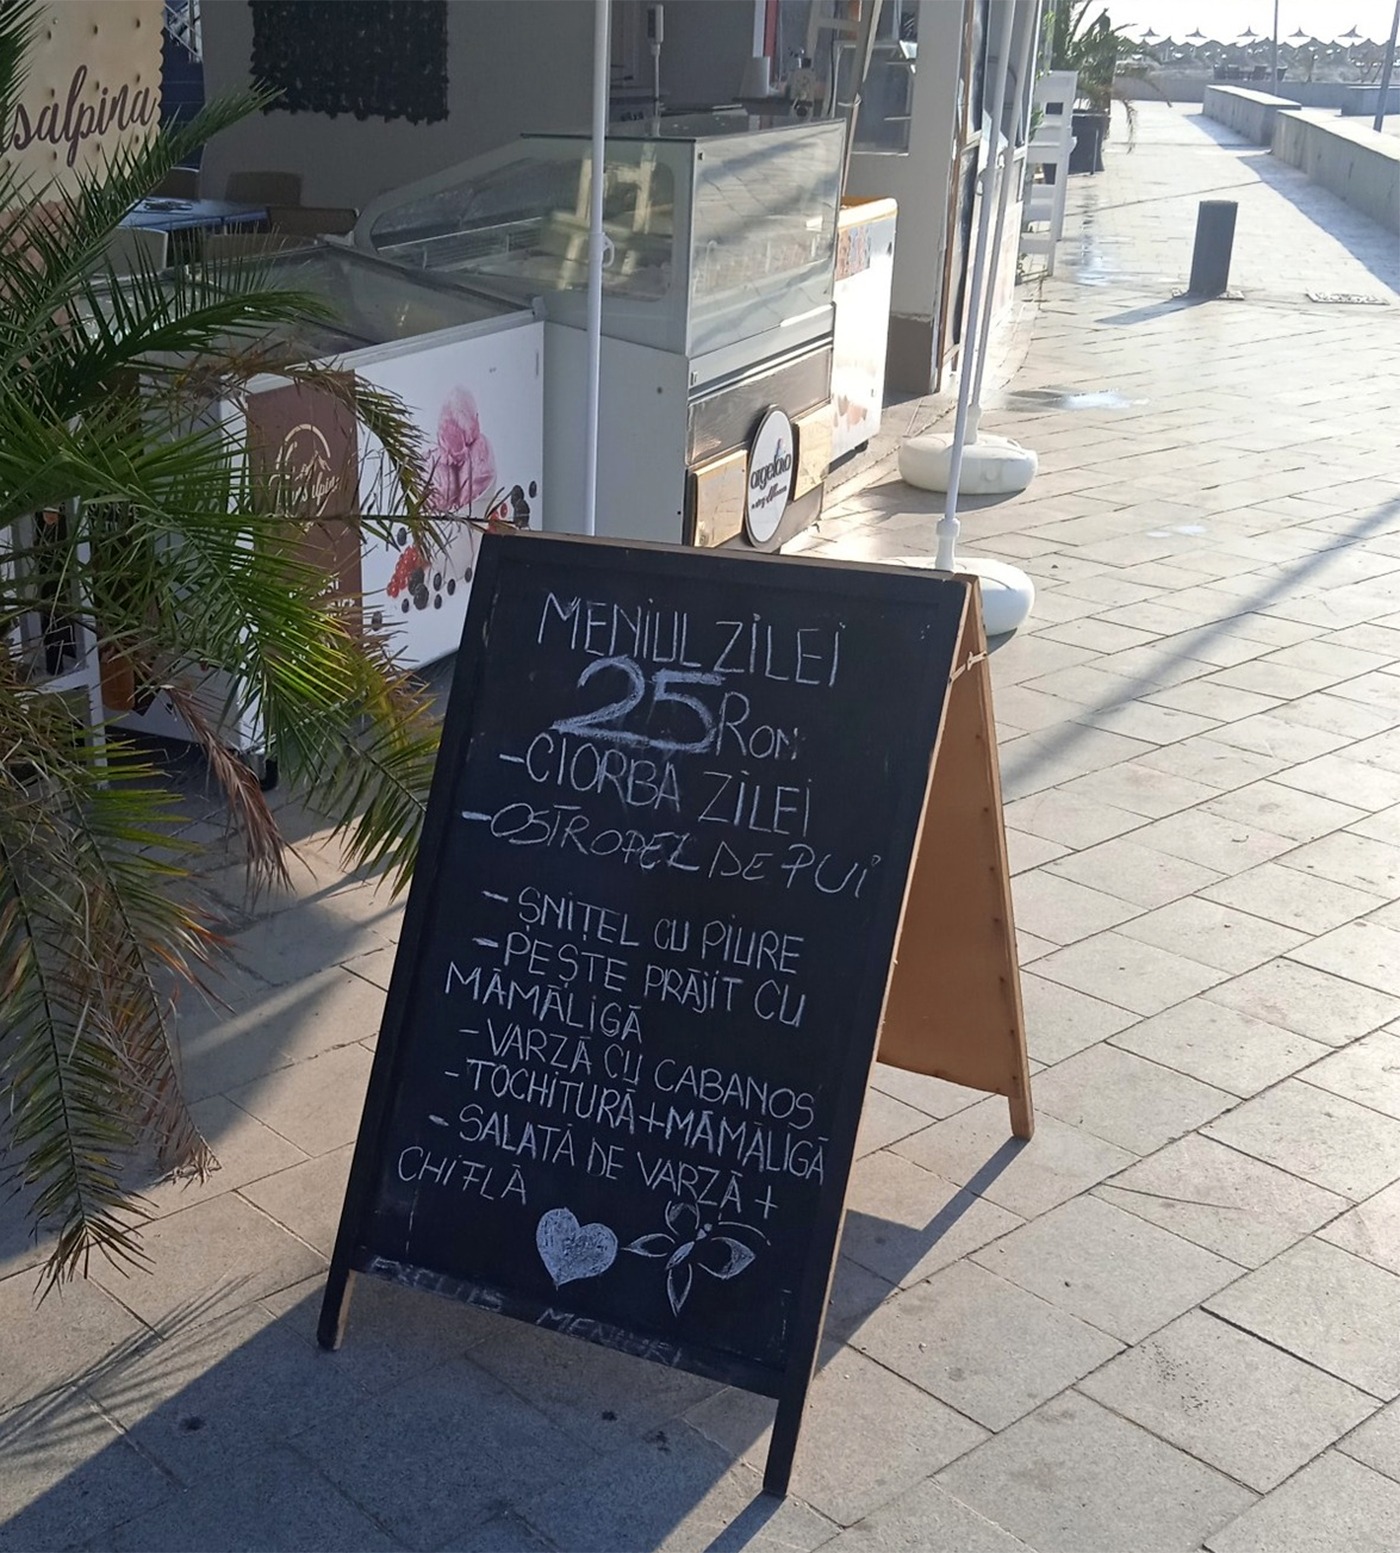 salpina
argelato
MENIUL ZILEI
25 RON
-CIORBA ZILEI
-OSTROPEL DE PUI
- ȘNIȚEL CU PIURE
-PEȘTE PRĂJIT CU
MĂMĂLIGĂ
-VARZĂ CU CABANOS
-TOCHITURĂ+MĂMĂLIGĂ
- SALATĂ DE VARZĂ +
CHIFLĂ